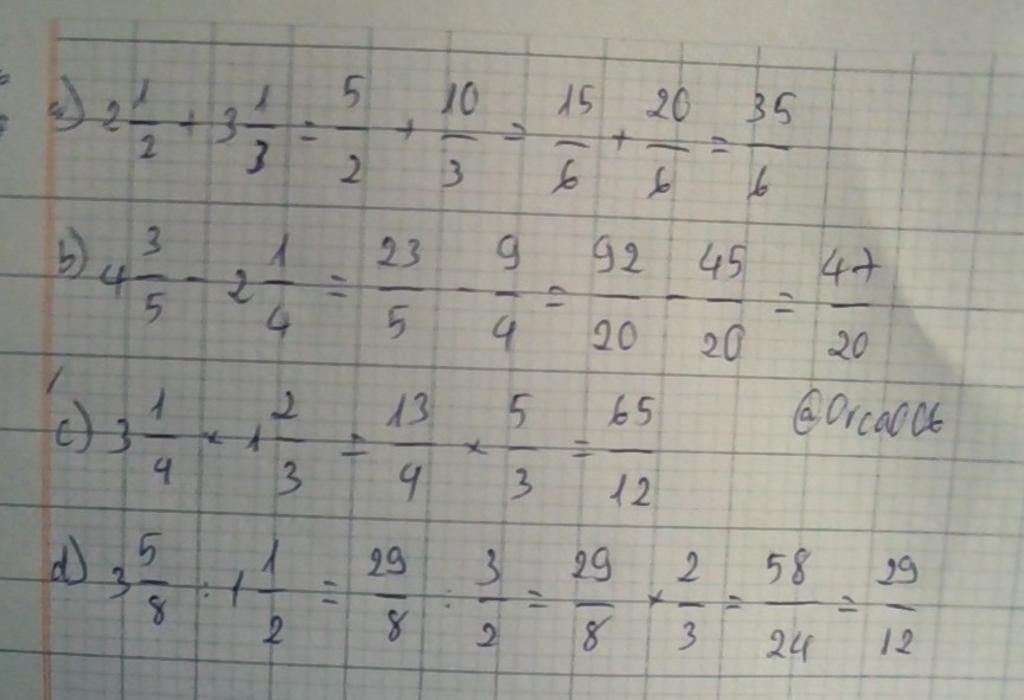 a) 2 1/2 + 3 1/3 = 5/2 + 10/3 = 15/6 + 20/6 = 35/6
b) 4 3/5 - 2 1/4 = 23/5 - 9/4 = 92/20 - 45/20 = 47/20
c) 3 1/4 × 1 2/3 = 13/4 × 5/3 = 65/12
@Orca006
d) 3 5/8 : 1 1/2 = 29/8 : 3/2 = 29/8 × 2/3 = 58/24 = 29/12